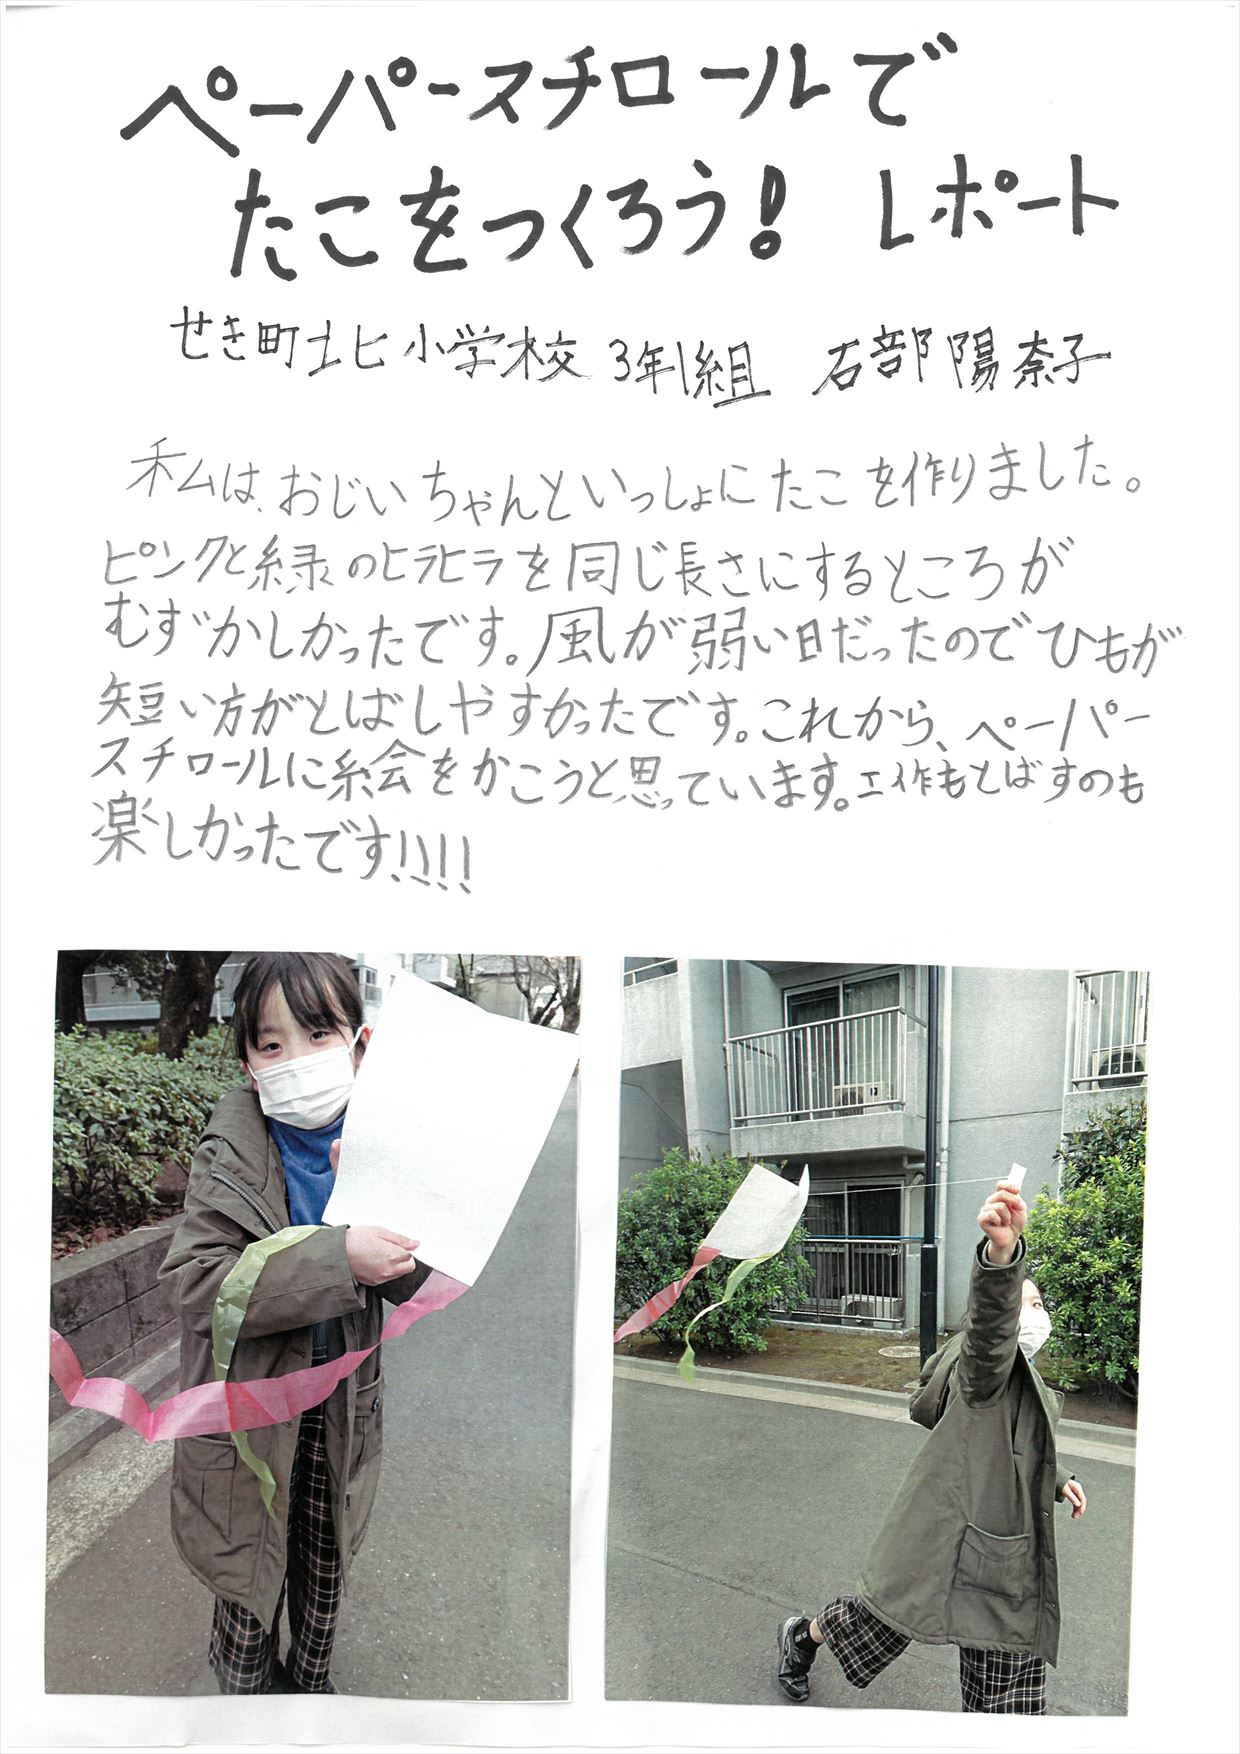 ペーパースチロールで
たこをつくろう! レポート
せき町北小学校 3年1組 石部陽奈子
私は、おじいちゃんといっしょにたこを作りました。
ピンクと緑のヒラヒラを同じ長さにするところが
むずかしかったです。風が弱い日だったのでひもが
短い方がとばしやすかったです。これから、ペーパー
スチロールに絵をかこうと思っています。工作もとばすのも
楽しかったです!!!!